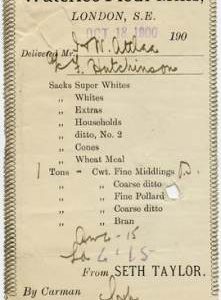 Waterloo Flour Mills,
LONDON, S.E.
OCT 18 1900 190
Delivered Mr. J W. Attlee
F. Hutchinson
Sacks Super Whites
„ Whites
„ Extras
„ Households
„ ditto, No. 2
„ Cones
„ Wheat Meal
1 Tons - Cwt. Fine Middlings
„ Coarse ditto
„ Fine Pollard
„ Coarse ditto
„ Bran
6-15
6-15
From SETH TAYLOR.
By Carman